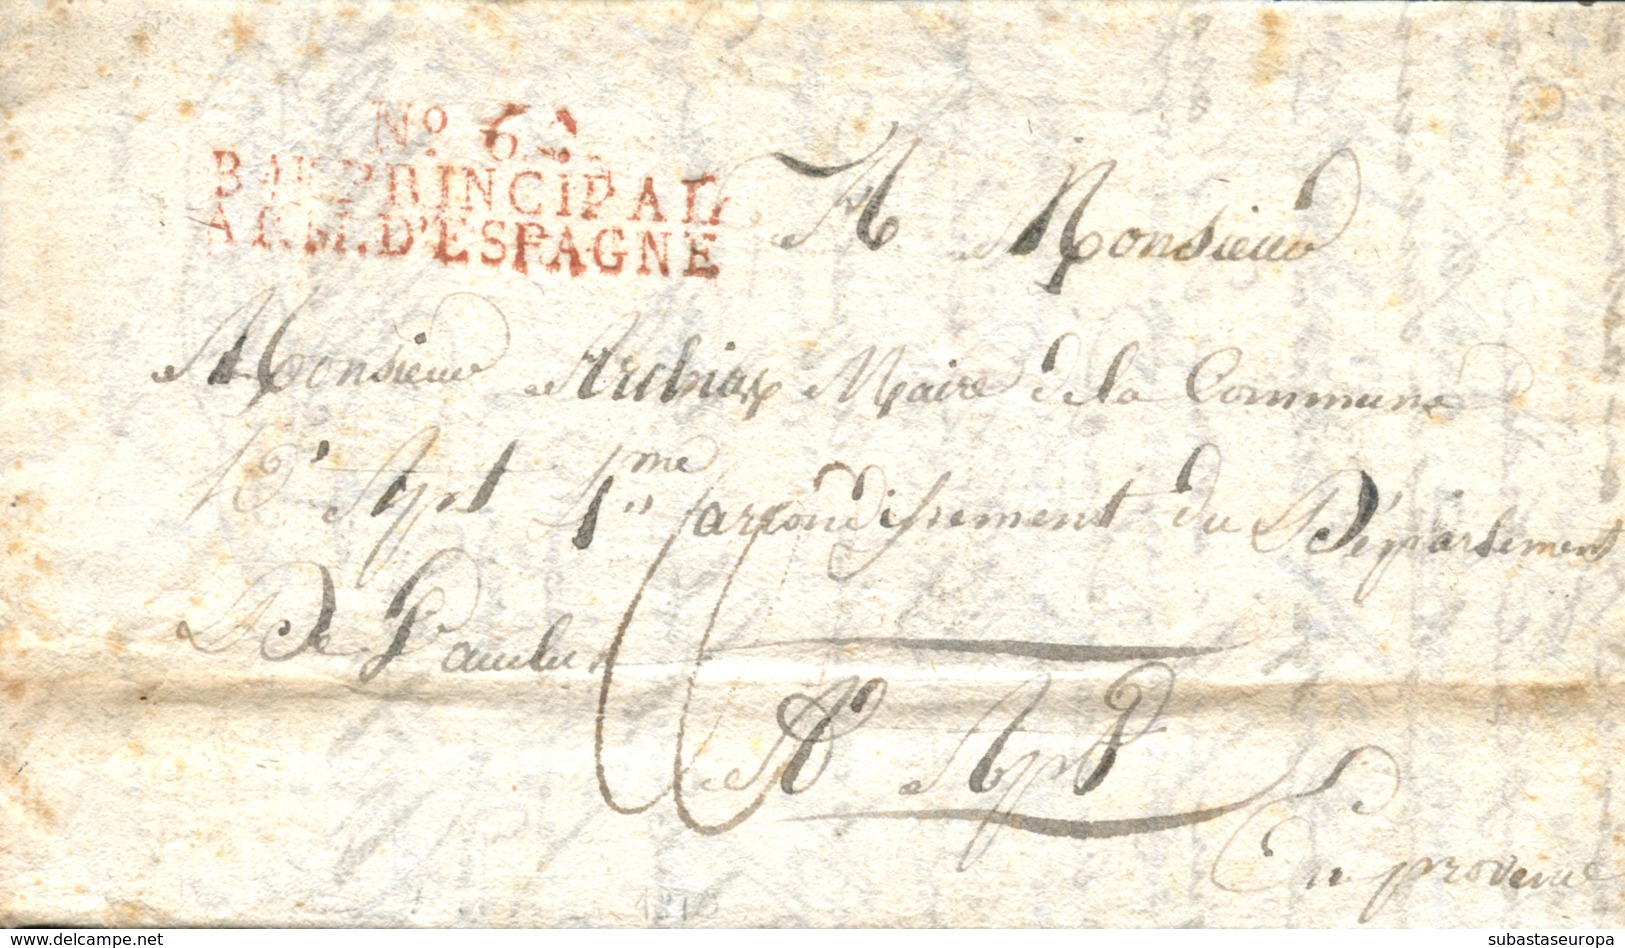 No 62.
BAU PRINCIPAL
ARM. D'ESPAGNE
A Monsieur
Monsieur Maire de la Commune
D'Apt 4me arrondissement du Département
De Vaucluse
A Apt
En provence
delcampe.net
subastaseuropa